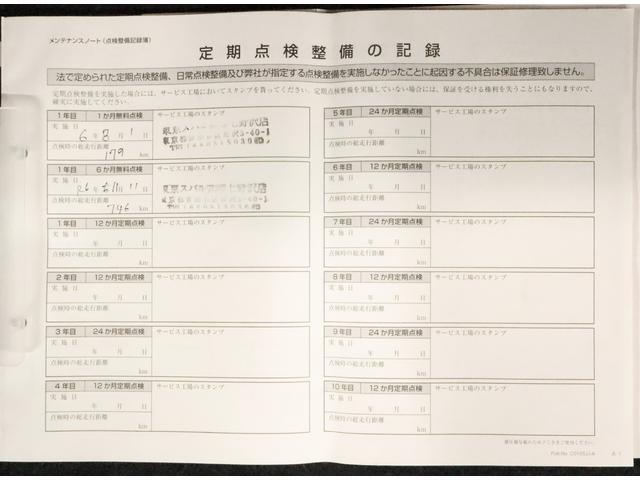 メンテナンスノート(点検整備記録簿)
定期点検整備の記録
法で定められた定期点検整備、日常点検整備及び弊社が指定する点検整備を実施しなかったことに起因する不具合は保証修理致しません。
定期点検整備を実施した場合には、サービス工場においてスタンプを貰ってください。定期点検整備を実施していない場合には、保証を受ける権利を失うことにもなりますので、
確実に実施してください。
1年目 1か月無料点検 サービス工場のスタンプ
実施日
6年8月1日
点検時の総走行距離
179 km
1年目 6か月無料点検 サービス工場のスタンプ
実施日
R6年 11月11日
点検時の総走行距離
746 km
1年目 12か月定期点検 サービス工場のスタンプ
実施日
年 月 日
点検時の総走行距離
km
2年目 12か月定期点検 サービス工場のスタンプ
実施日
年 月 日
点検時の総走行距離
km
3年目 24か月定期点検 サービス工場のスタンプ
実施日
年 月 日
点検時の総走行距離
km
4年目 12か月定期点検 サービス工場のスタンプ
実施日
年 月 日
点検時の総走行距離
km
5年目 24か月定期点検 サービス工場のスタンプ
実施日
年 月 日
点検時の総走行距離
km
6年目 12か月定期点検 サービス工場のスタンプ
実施日
年 月 日
点検時の総走行距離
km
7年目 24か月定期点検 サービス工場のスタンプ
実施日
年 月 日
点検時の総走行距離
km
8年目 12か月定期点検 サービス工場のスタンプ
実施日
年 月 日
点検時の総走行距離
km
9年目 24か月定期点検 サービス工場のスタンプ
実施日
年 月 日
点検時の総走行距離
km
10年目 12か月定期点検 サービス工場のスタンプ
実施日
年 月 日
点検時の総走行距離
km